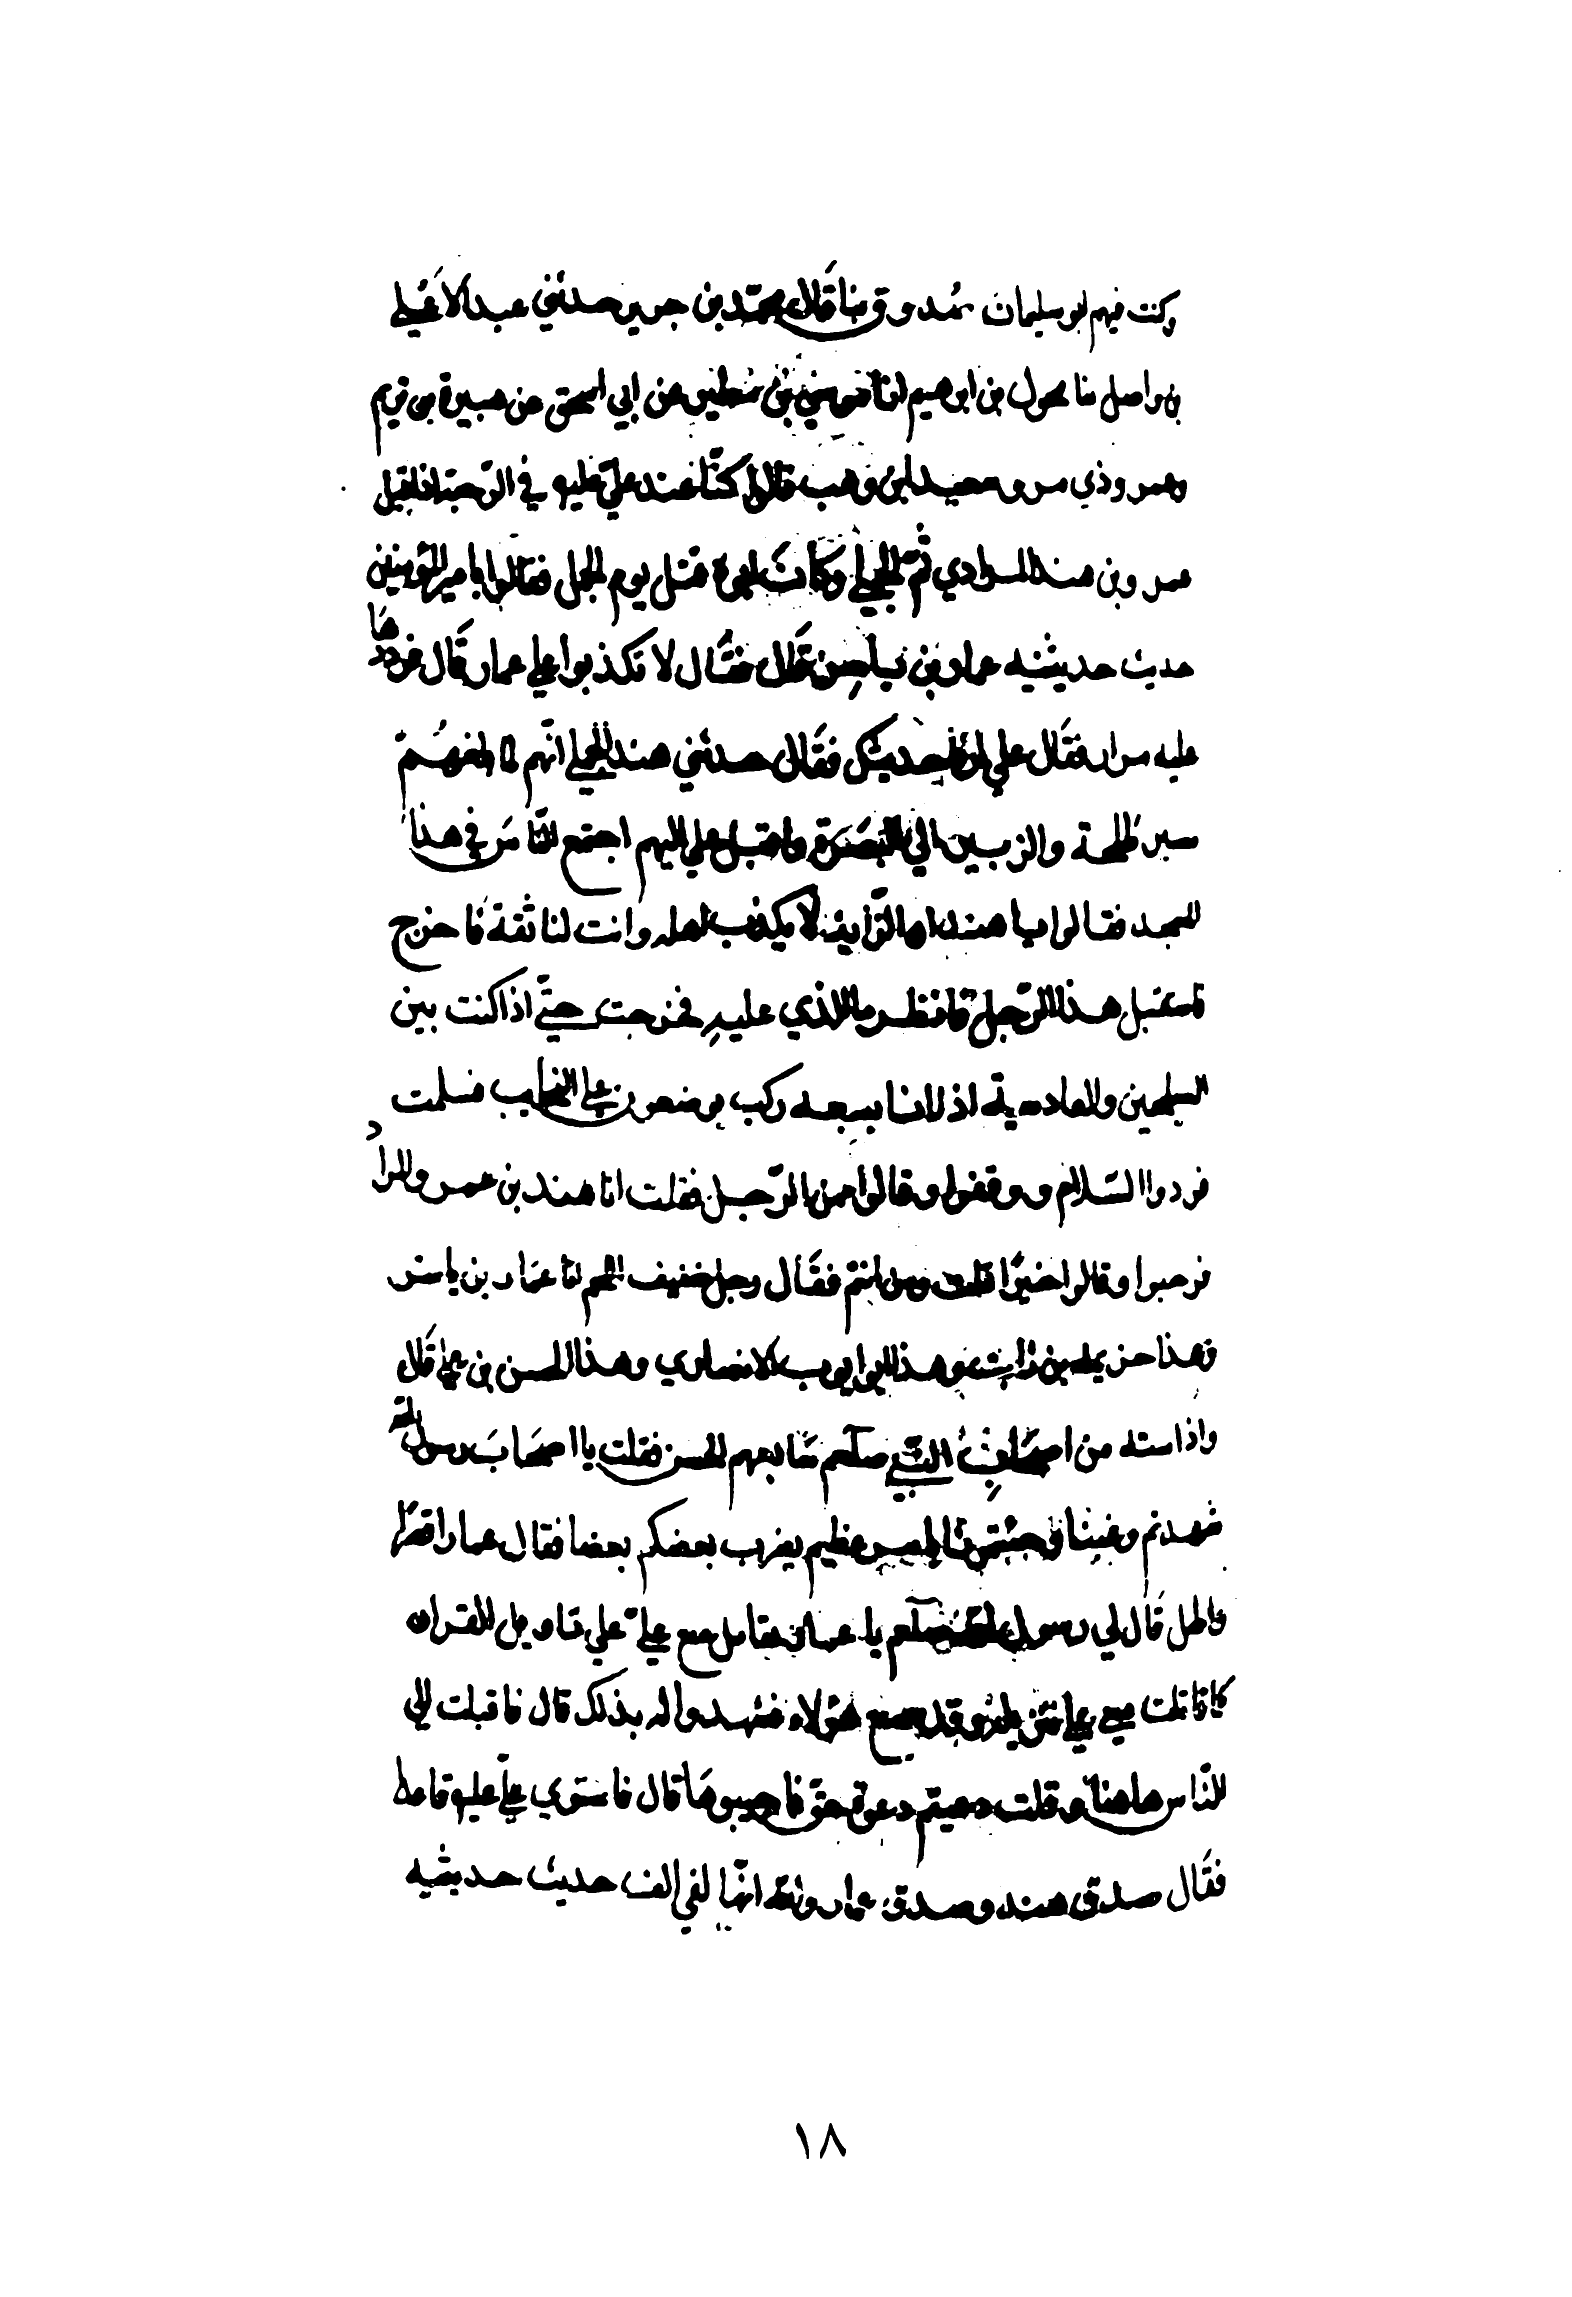 وكنت فيهم ابو سليمان قال محمد بن جرير حدثني عبد الاعلى
بن واصل نا مخول بن ابرهيم انا موسى بن مطير عن ابي اسحق عن هبيرة بن يريم
وعمرو ذي مر وسعيد بن وهب قالوا كنا عند علي عليه في الرحبة اذ اقبل
عمرو بن هند المرادي ثم الجملي وكان ابوه قتل يوم الجمل فقالوا يا امير المؤمنين
حديث حديثنيه عمار بن ياسر قال فقال لا تكذبوا على عمار قال فرددها
عليه مرارا فقال علي حديثك فقال حدثني هند الجملي انهم لما بلغهم
سير طلحة والزبير الى البصرة واقبل علي اليهم اجتمع الناس في هذا
المسجد فقالوا يا هند ان الرايد لا يكذب اهله وانت لنا ثقة فاخرج
فاستقبل هذا الرجل فانظر ما الذي عليه فخرجت حتى اذا كنت بين
السيلحين والقادسية اذ انا بسبعه ركب يوضعون على النجايب فسلمت
فردوا السلام ووقفوا وقالوا من الرجل فقلت انا هند بن عمرو المراد
فرحبوا وقالوا خيرا قلت ومن انتم فقال رجل خفيف اللحم انا عمار بن ياسر
وهذا خزيمة بن ثابت وهذا ابو ايوب الانصاري وهذا الحسن بن علي قال
واذا سته من اصحاب النبي صلعم سابعهم الحسن فقلت يا اصحاب رسول الله
شهدتم وغبنا وجئتم بامر عظيم يضرب بعضكم بعضا فقال عمار اقصر او
اطل قال لي رسول الله صلعم يا عمار تقاتل مع علي على تاويل القران
كما قاتلت معي على تنزيله وقد سمع هؤلاء فشهدوا له بذلك قال فاقبلت الى
الناس هاهنا وقلت دعيتم دعوة حق فاجيبوها قال فاستوى علي عليه قاعدا
فقال صدق هند وصدق عمار والله انها لفي الف حديث حدثنيه
١٨